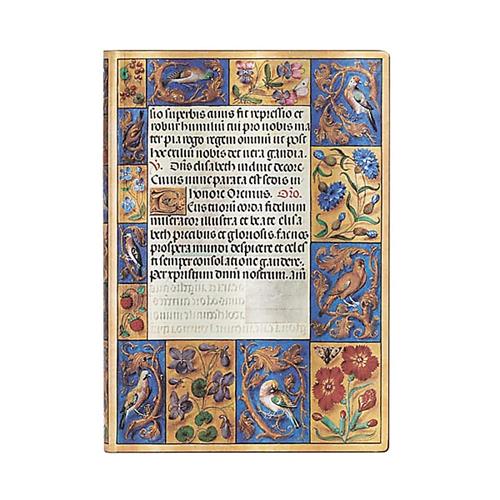 sio superbis fit repressio et
robur humilium tui pro nobis ma
ter pia rogo regem omnium ut post
hec nobis det vera gaudia.
V. elisabeth decore
Cuius parata est sedis in
honore Oremus. Oro.
corda fidelium
miserator illustra et beate elisa
beth precibus et gloriosis. fac nos
prospera mundi despicere et celes
ti semper consolatione gaudere.
per xpistum dnm nostrum. am